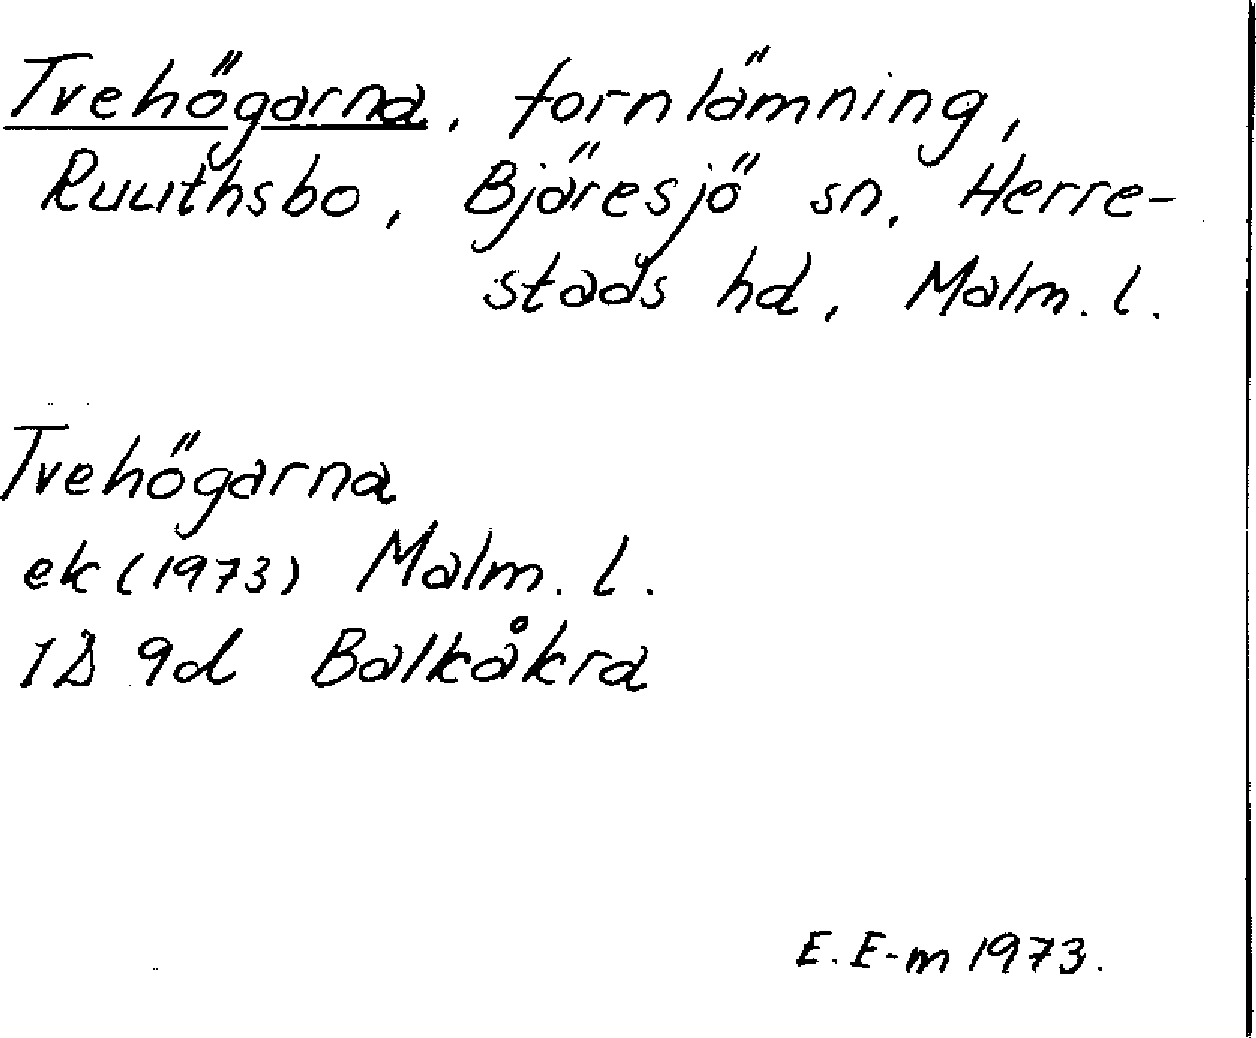 Tvehögarna, fornlämning,
Ruuthsbo, Bjäresjö sn, Herre-
stads hd, Malm. l.
Tvehögarna
ek (1973) Malm. l.
1D 9d Balkåkra
E. E-m 1973.